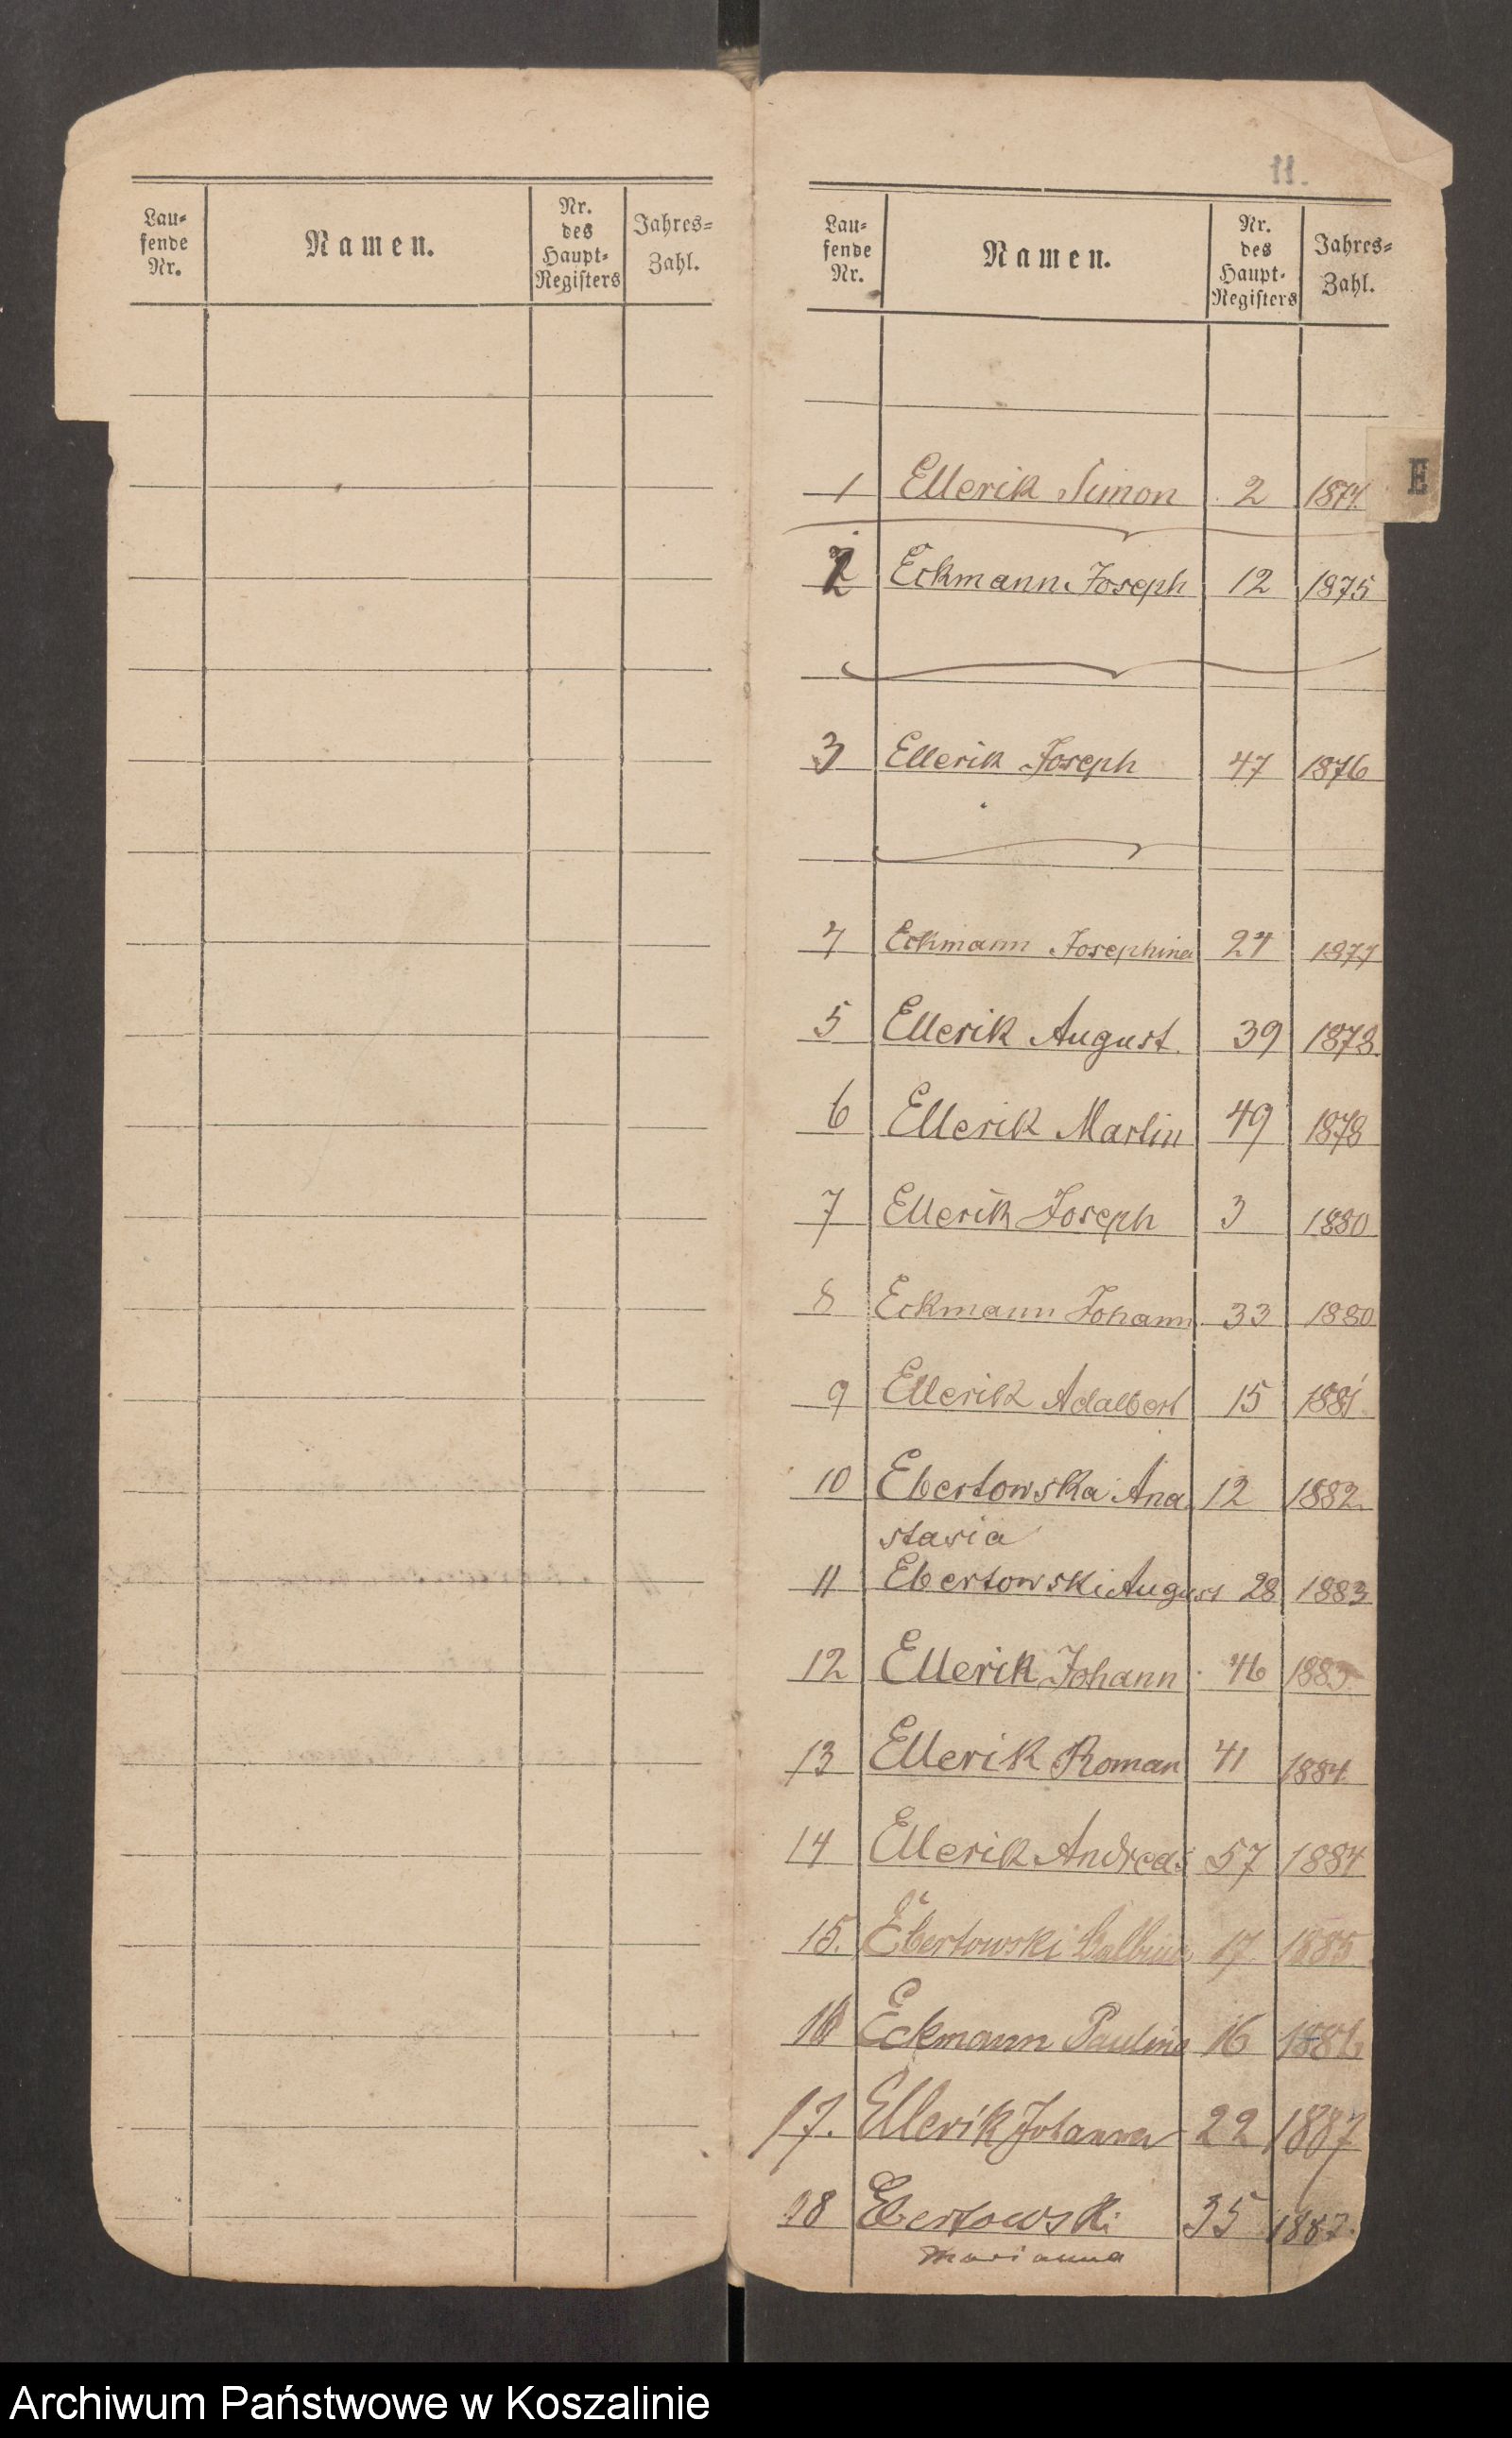 Lau-
fende
Nr.
Namen.
Nr.
des
Haupt-
Registers
Jahres-
Zahl.
11.
Lau-
fende
Nr.
Namen.
Nr.
des
Haupt-
Registers
Jahres-
Zahl.
E
1 Ellerik Simon 2 1874.
2 Eckmann Joseph 12 1875
3 Ellerik Joseph 47 1876
4 Eckmann Josephina 24 1877
5 Ellerik August. 39 1878.
6 Ellerik Martin 49 1878
7 Ellerik Joseph 3 1880
8 Eckmann Johann 33 1880
9 Ellerik Adalbert 15 1881
10 Ebertowska Ana 12 1882.
stasia
11 Ebertowski August 28 1883
12 Ellerik Johann 46 1883.
13 Ellerik Roman 41 1884.
14 Ellerik Andreas 57 1884
15. Ebertowski Balbina 17 1885
16 Eckmann Paulina 16 1886
17. Ellerik Johanna 22 1887
18 Ebertowski 35 1887.
Marianna
Archiwum Państwowe w Koszalinie